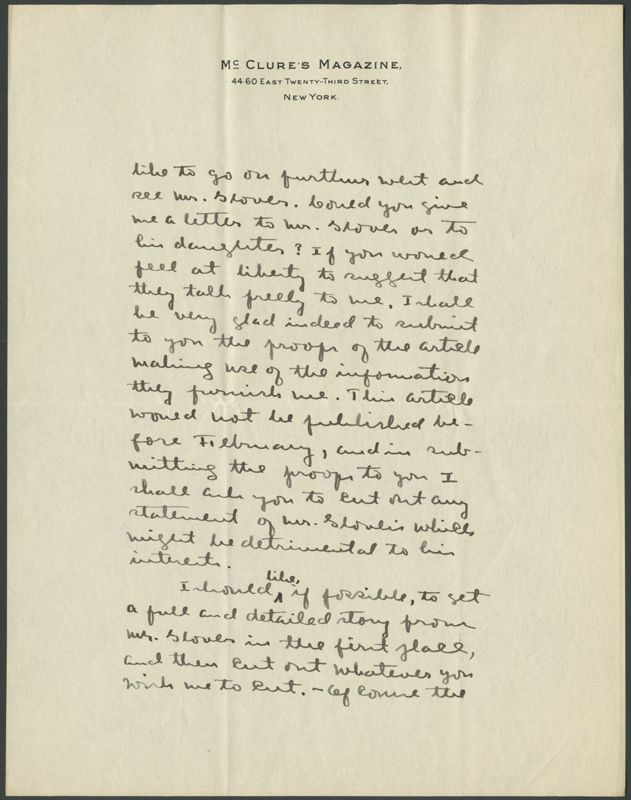 McClure's Magazine,
44-60 East Twenty-Third Street,
New York.
like to go on further west and
see Mr. Glover. Could you give
me a letter to Mr. Glover or to
his daughter? If you would
feel at liberty to suggest that
they talk freely to me, I shall
be very glad indeed to submit
to you the proofs of the article
making use of the information
they furnish me. This article
would not be published be-
fore February, and in sub-
mitting the proofs to you I
shall ask you to cut out any
statement of Mr. Glover's which
might be detrimental to his
interests.
I should like, if possible, to get
a full and detailed story from
Mr. Glover in the first place,
and then cut out whatever you
wish me to cut. - Of course the